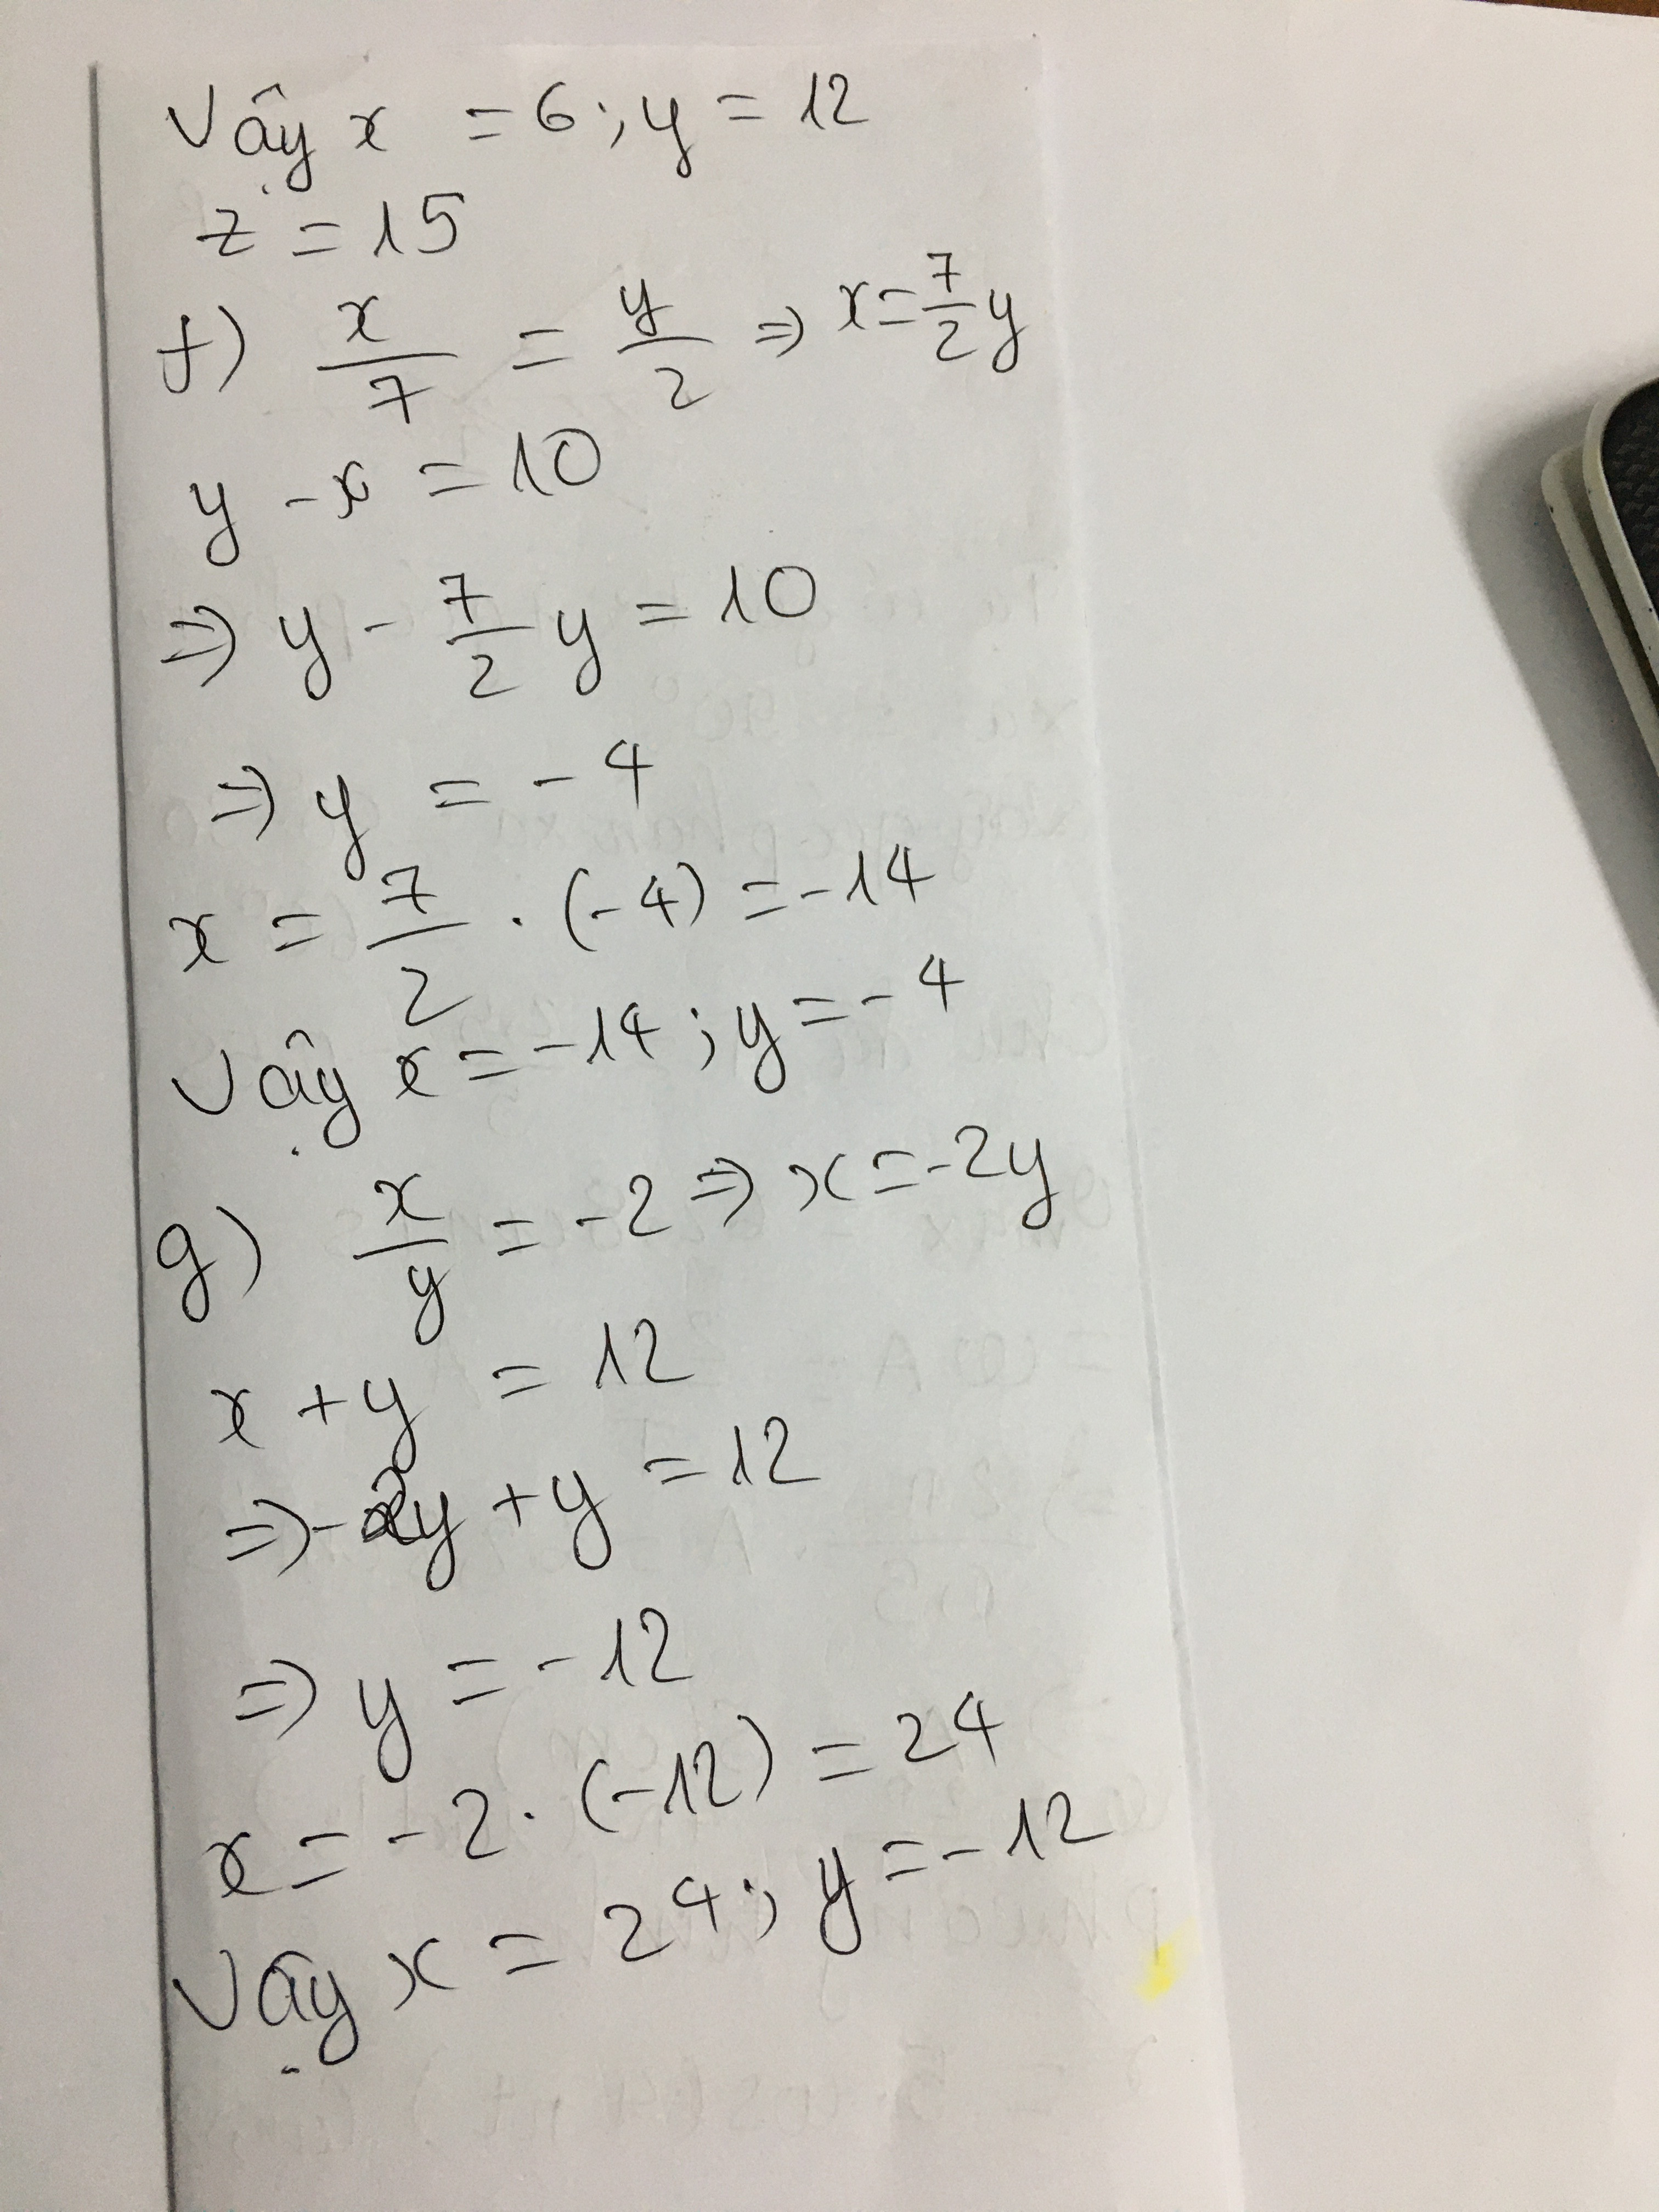 Vậy x = 6 ; y = 12
z = 15
f) x/7 = y/2 => x = 7/2 y
y - x = 10
=> y - 7/2 y = 10
=> y = -4
x = 7/2 . (-4) = -14
Vậy x = -14 ; y = -4
g) x/y = -2 => x = -2y
x + y = 12
=> -2y + y = 12
=> y = -12
x = -2 . (-12) = 24
Vậy x = 24 ; y = -12